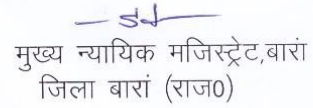 मुख्य न्यायिक मजिस्ट्रेट,बारां
जिला बारां (राज0)